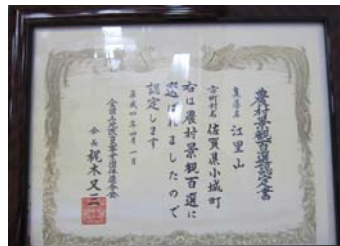 農村景観百選認定書
集落名 江里山
市町村名 佐賀県小城町
右は農村景観百選に
選ばれましたので
認定します
平成四年四月一日
会長 梶木又三